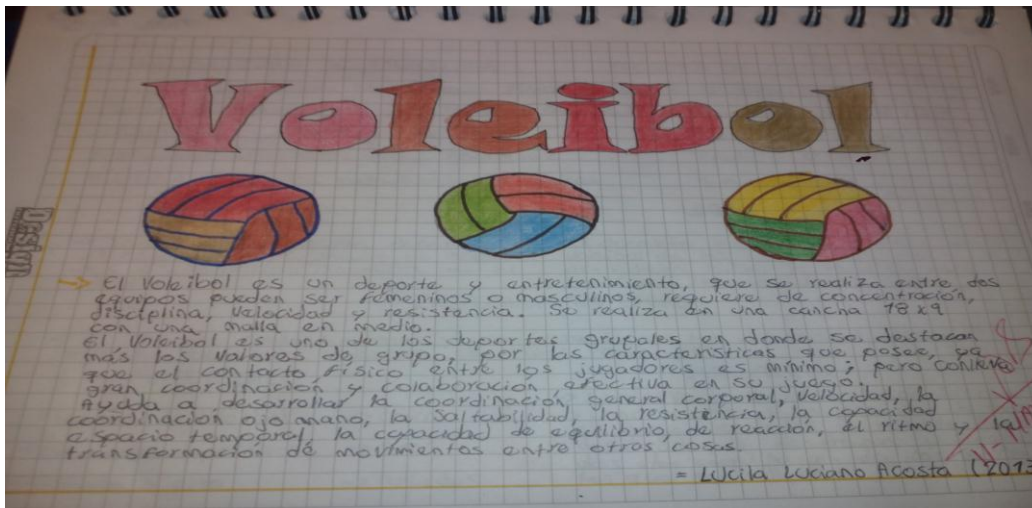 Voleibol
Design
→ El Voleibol es un deporte y entretenimiento, que se realiza entre dos
equipos pueden ser femeninos o masculinos, requiere de concentración,
disciplina, velocidad y resistencia. Se realiza en una cancha 18x9
con una malla en medio.
El Voleibol es uno de los deportes grupales en donde se destacan
más los valores de grupo, por las características que posee, ya
que el contacto físico entre los jugadores es mínimo; pero conlleva
gran coordinación y colaboración efectiva en su juego.
Ayuda a desarrollar la coordinación general corporal, velocidad, la
coordinación ojo mano, la saltabilidad, la resistencia, la capacidad
espacio temporal, la capacidad de equilibrio, de reacción, el ritmo y la
transformación de movimientos entre otros cosas.
= Lucila Luciano Acosta (2013